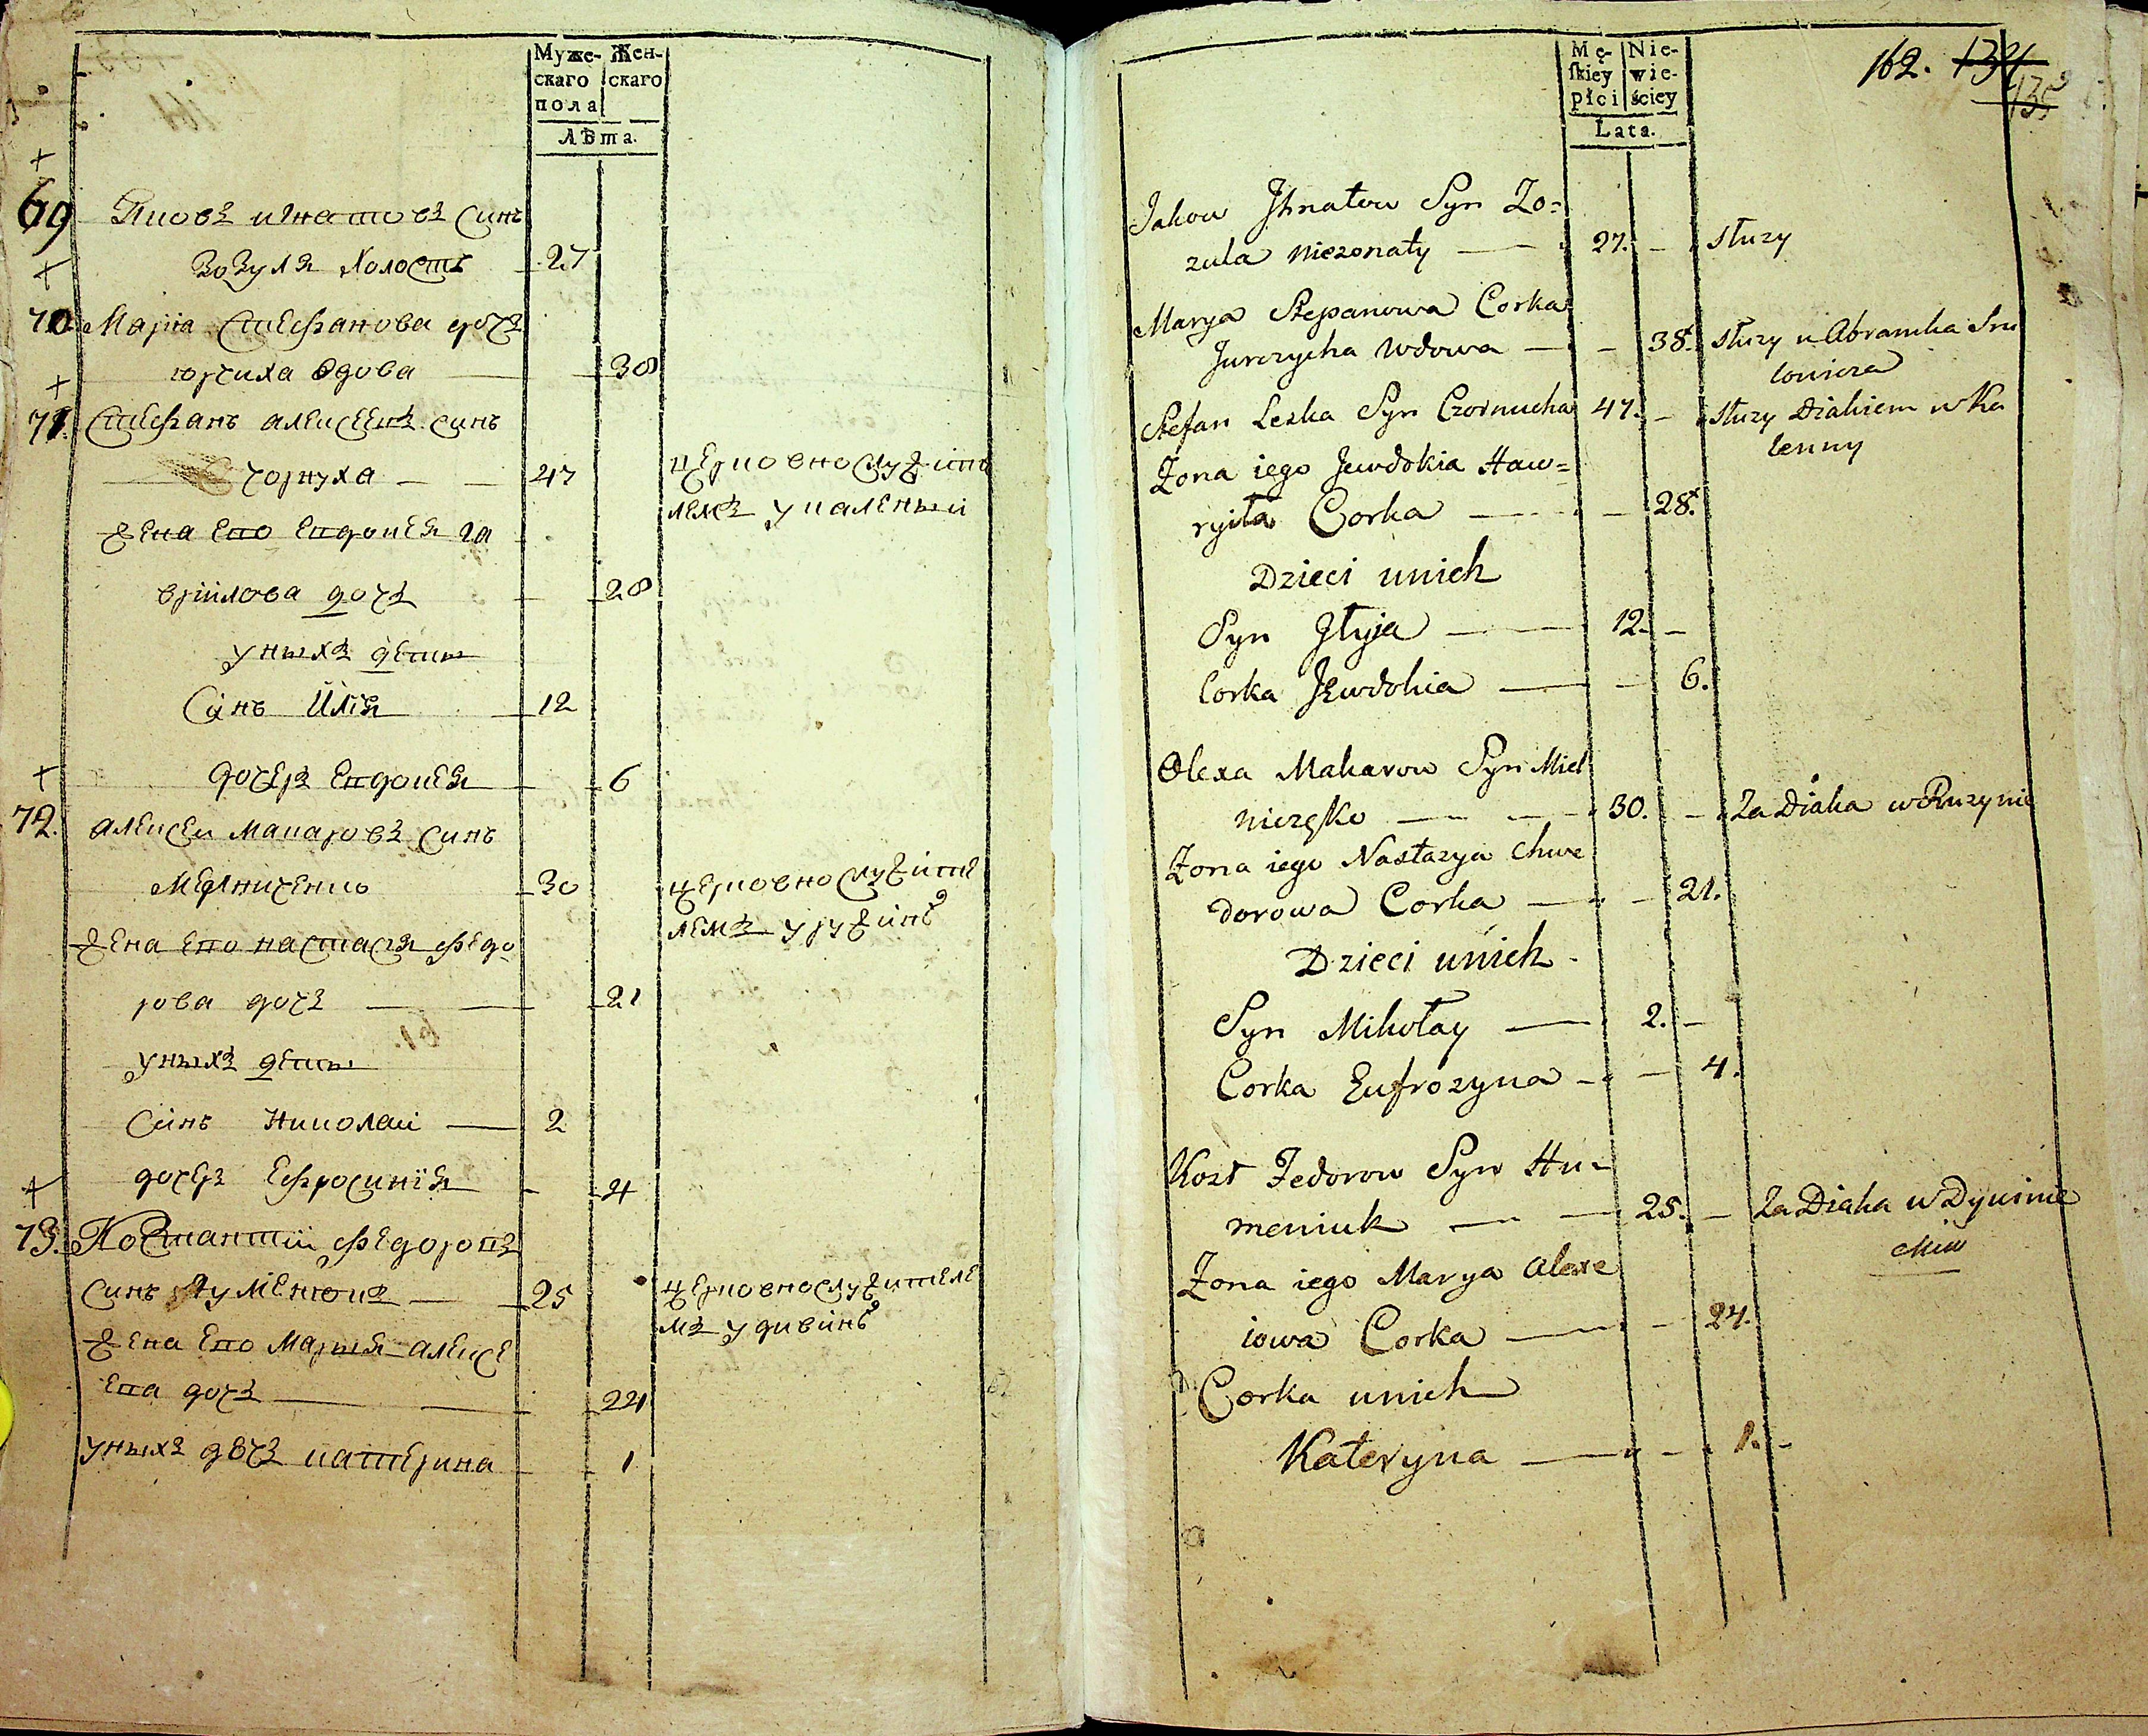 Муже- Жен-
скаго скаго
пола
Лѣта.
69 Яковъ игнатовъ синъ
Зозуля холостъ 27
70 Марїа Стефанова дочъ
юрчиха вдова 38
71. Стефанъ алексеевъ синъ
чорнуха 47 церковнослужите
лемъ у каленьий
жена его евдокея га
вріилова дочъ 28
у ныхъ дети
Синъ Илія 12
дочеръ евдокея 6
72. алексеи макаровъ синъ
Мелниченко 30 церковнослужите
лемъ у ружинѣ
жена его настася федо
рова дочъ 21
у ныхъ дети
Синъ Николай 2
дочеръ Ефросинїя 4
73. Костантїй федоровъ
синъ гуменюкъ 25 церковнослужителе
мъ у дивинѣ
жена его Марыя алексе
ева дочъ 24
у ныхъ дочъ катерина 1
Mę- Nie-
skiey wie-
płci ściey
Lata.
162. 134
135
Jakow Jhnatow Syn Zo=
zula niezonaty 27. słuzy
Marya Stepanowa Corka
Jurczycha wdowa 38. słuzy u Abramka Sru
lowicza
Stefan Leska Syn Czornucha 47. słuzy Diakiem w Ka
lenny
Zona iego Jewdokia Haw=
ryiła Corka 28.
Dzieci unich
Syn Jłyja 12.
Corka Jewdokia 6.
Olexa Makarow Syn Miel
niczęko 30. Za Diaka w Ruzynie
Zona iego Nastazya Chwe
dorowa Corka 21.
Dzieci unich
Syn Mikołay 2.
Corka Eufrozyna 4.
Kost Fedorow Syn Hu-
meniuk 25. Za Diaka w Dywinie
Zona iego Marya Alexe
iowa Corka 24.
Corka unich
Kateryna 1.